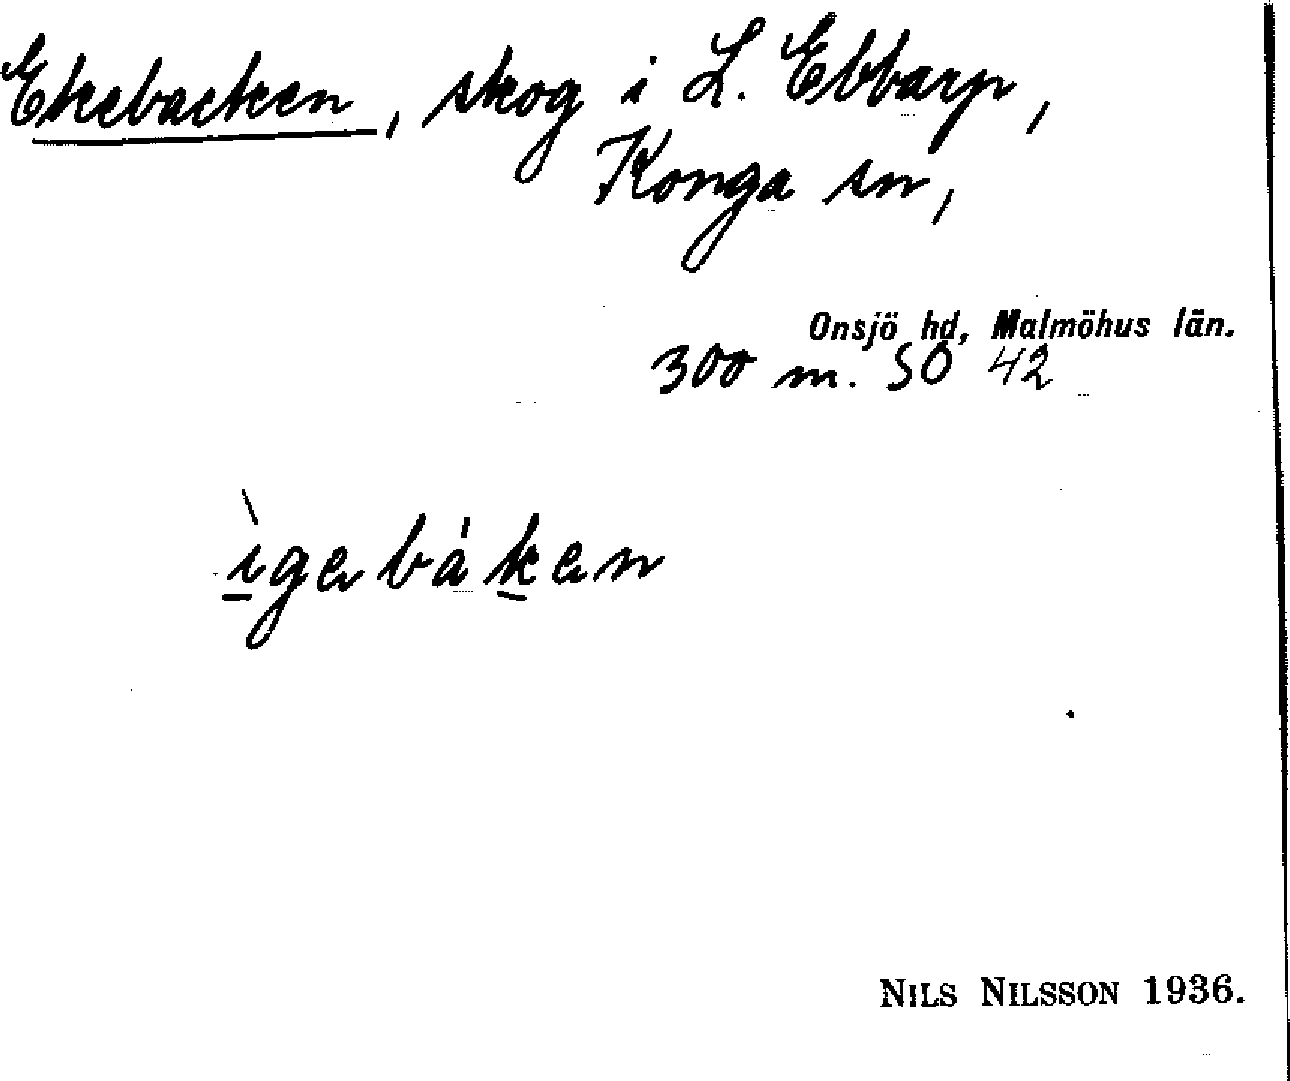 Ekebacken, skog i L. Ebbarp,
Konga sn,
Onsjö hd, Malmöhus län.
300 m. SO 42
ìgebáken
NILS NILSSON 1936.